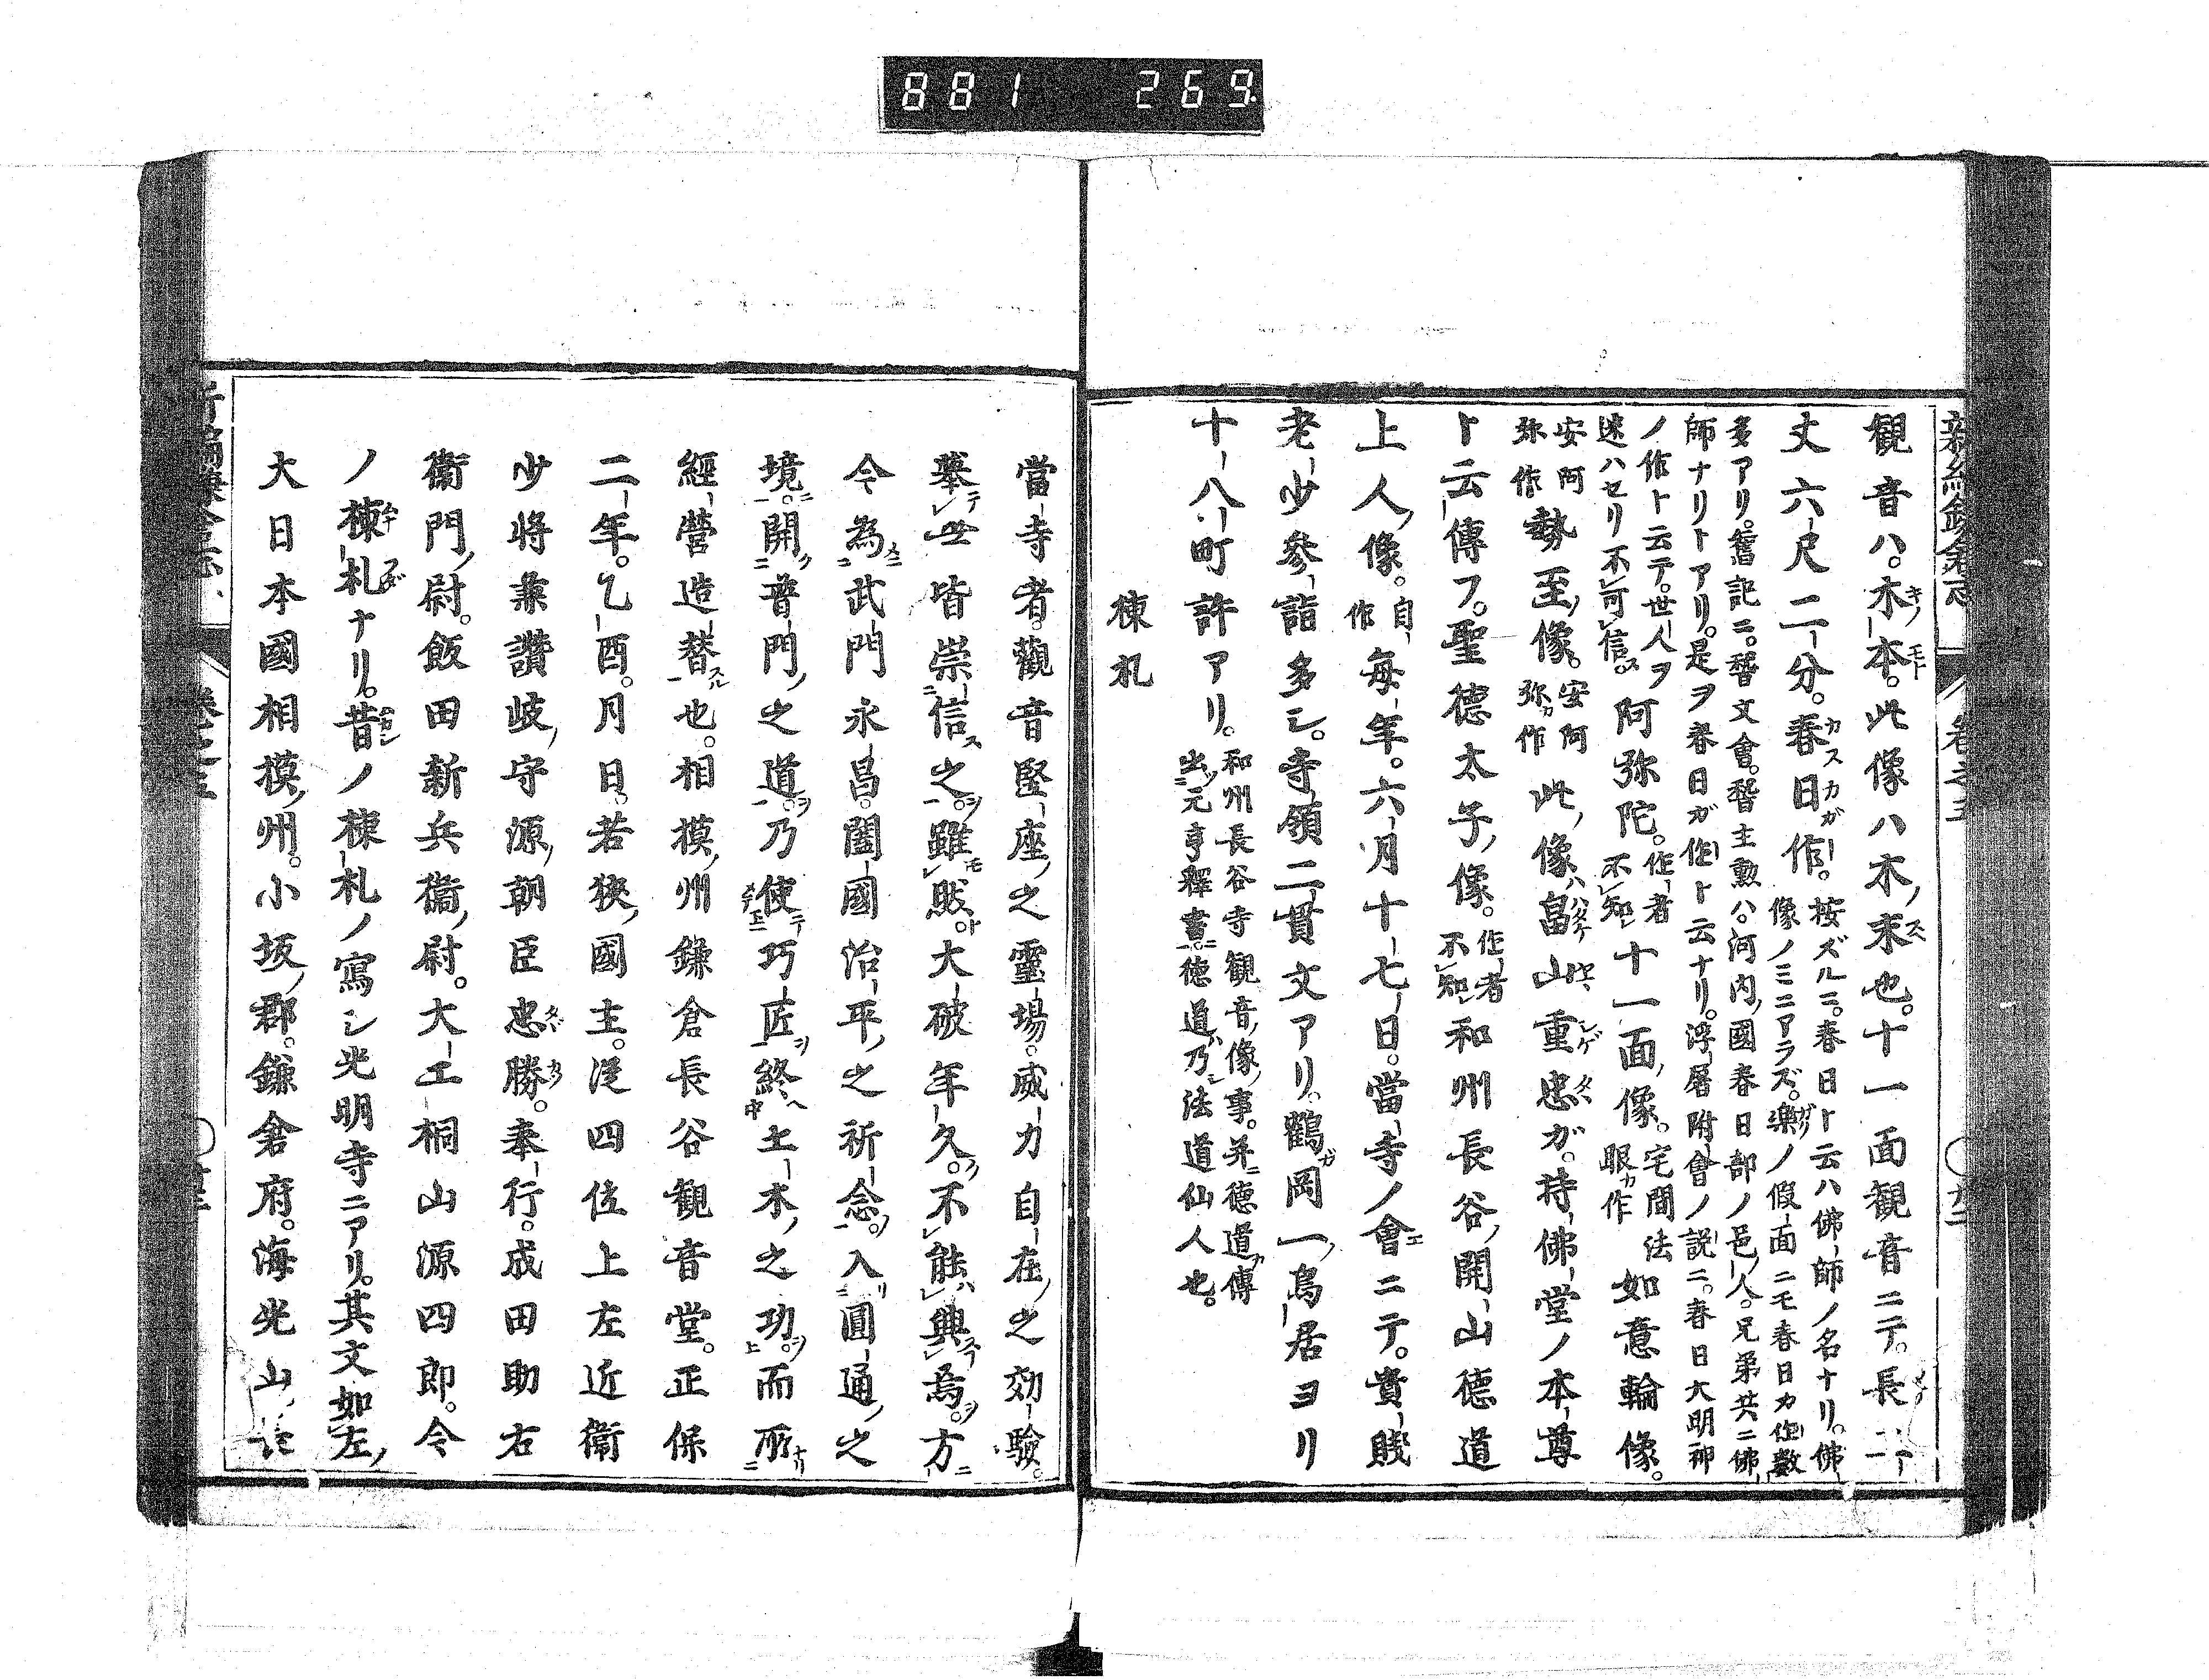 881 269
新編鎌倉志 卷之五 ○廿二
觀音ハ。木本。此像ハ木末也。十一面觀音ニテ。長二
丈六尺二分。春日作。
按ズルニ。春日ト云ハ佛師ノ名ナリ。佛
像ノミニアラズ。樂ノ假面ニモ春日カ作數
多アリ。舊記ニ。稽文會。稽主勲ハ。河内國春日部ノ邑人。兄弟共ニ佛
師ナリトアリ。是ヲ春日ガ作ト云ナリ。浮屠附會ノ説ニ。春日大明神
ノ作ト云テ。世人ヲ
迷ハセリ不可信。
阿弥陀。
作者
不知
十一面像。
宅間法
眼作
如意輪像。
安阿
弥作
勢至像。
安阿
弥作
此像ハ畠山重忠ガ。持佛堂ノ本尊
ト云傳フ。聖德太子像。
作者
不知
和州長谷開山德道
上人像。
自
作
每年。六月十七日。當寺ノ會ニテ。貴賤
老少參詣多シ。寺領二貫文アリ。鶴岡一鳥居ヨリ
十八町許アリ。
和州長谷寺觀音像事。并ニ德道傳
出元亨釋書。德道乃法道仙人也。
棟札
當寺者。觀音堅座之靈場。威力自在之効驗。
擧世皆崇信之。雖然大破年久。不能興焉。方
今為武門永昌。闔國治平之祈念。入圓通之
境。開普門之道。乃使巧匠終土木之功。而所
經營造替也。相摸州鎌倉長谷觀音堂。正保
二年。乙酉。月日。若狹國主。從四位上左近衞
少將兼讃岐守源朝臣忠勝。奉行。成田助右
衞門尉。飯田新兵衞尉。大工桐山源四郎。今
ノ棟札ナリ。昔ノ棟札ノ寫シ光明寺ニアリ。其文如左
大日本國相摸州。小坂郡。鎌倉府。海光山